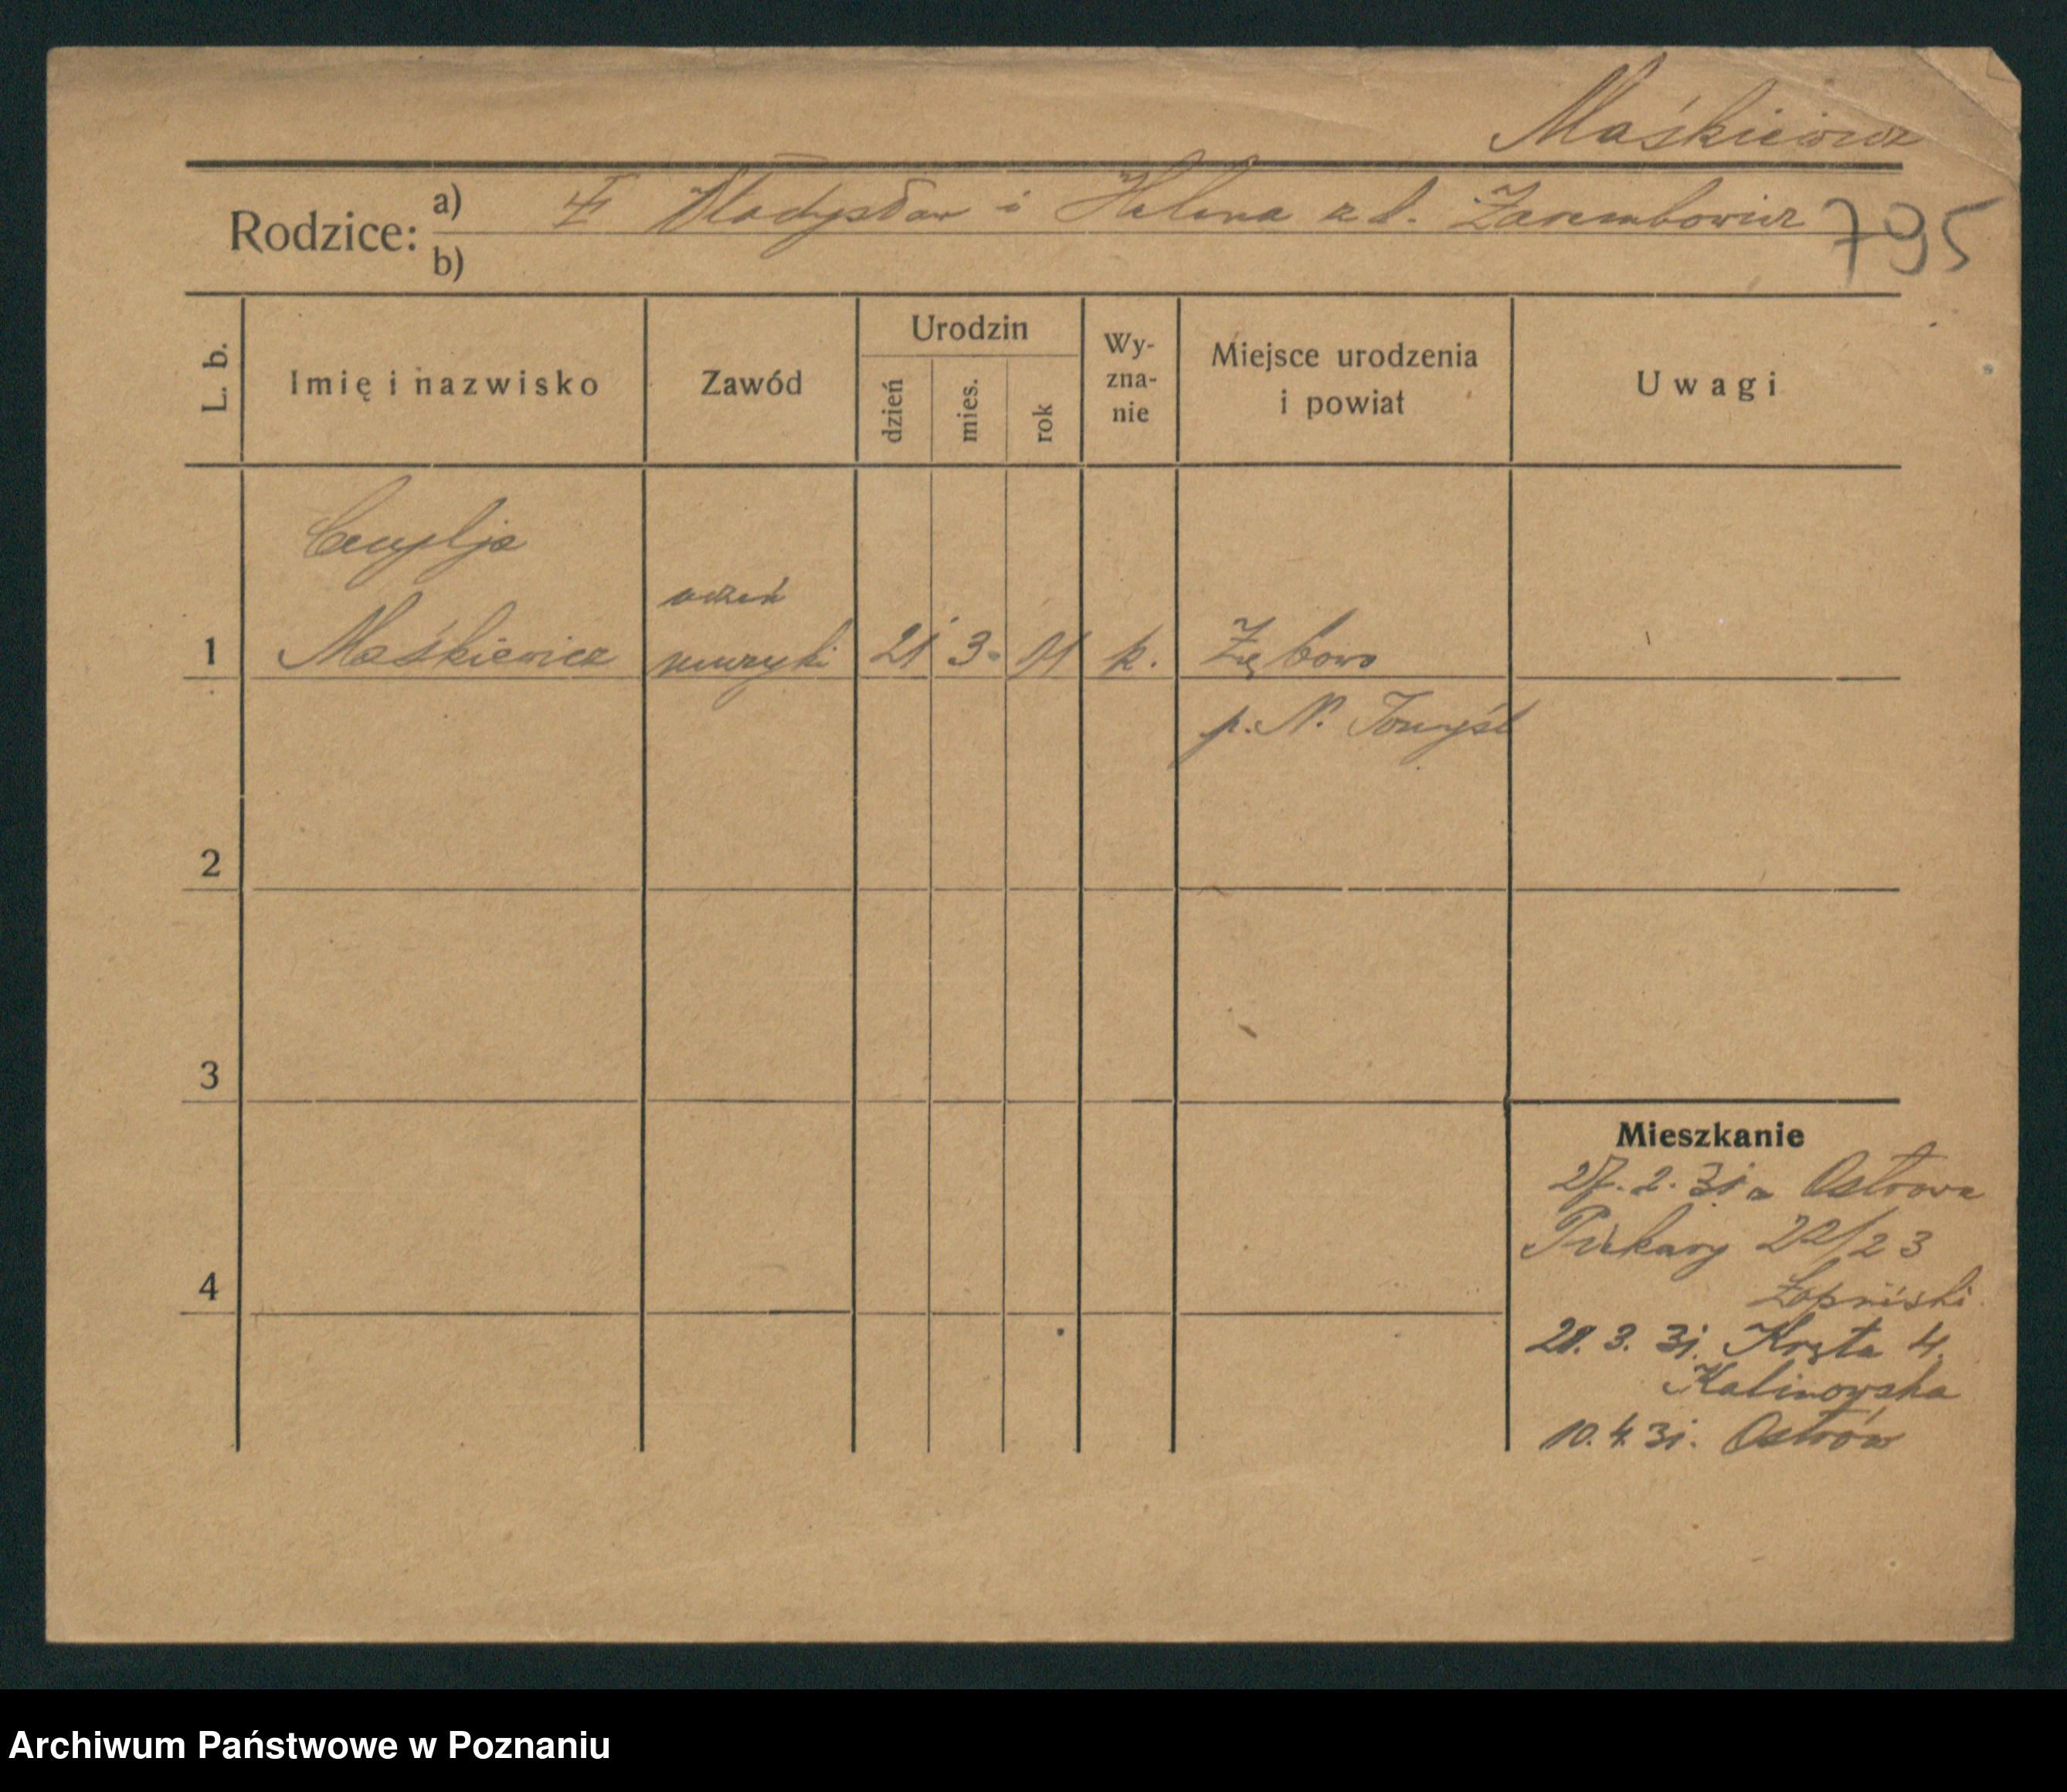 Maśkiewicz
Rodzice: a) Władysław i Helena z d. Zarembowicz
b)
795
L. b.
Imię i nazwisko
Zawód
Urodzin
dzień
mies.
rok
Wy-
zna-
nie
Miejsce urodzenia
i powiat
Uwagi
uczeń
1 Maśkiewicz muzyki 21 3. 11 k. Zębowo
p. N. Tomyśl
2
3
4
Mieszkanie
27. 2. 31 z Ostrowa
Piekary 22/23
28. 3. 31. Kręta 4.
Kalinowska
10. 4. 31. Ostrów
Archiwum Państwowe w Poznaniu